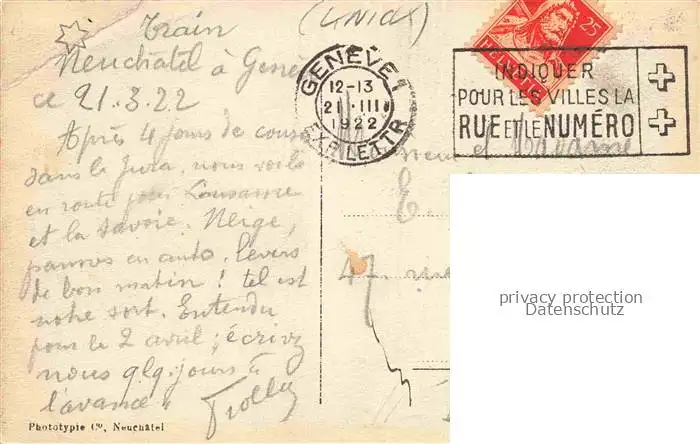 Train
(UNION)
Neuchâtel à Genè
ce 21.3.22
Après 4 jours de course
dans le Jura, nous voilà
en route pour Lausanne
et la Savoie. Neige,
pannes en auto. levers
de bon matin ! tel est
notre sort. Entendu
pour le 2 avril ; écrivez
nous qlq. jours à
l'avance.
Phototypie Co, Neuchâtel
GENÈVE 1
12-13
21 III
1922
EXP. LETTR.
25
HELVETIA
INDIQUER
POUR LES VILLES LA
RUE ET LE NUMÉRO
et Madame
47
privacy protection
Datenschutz